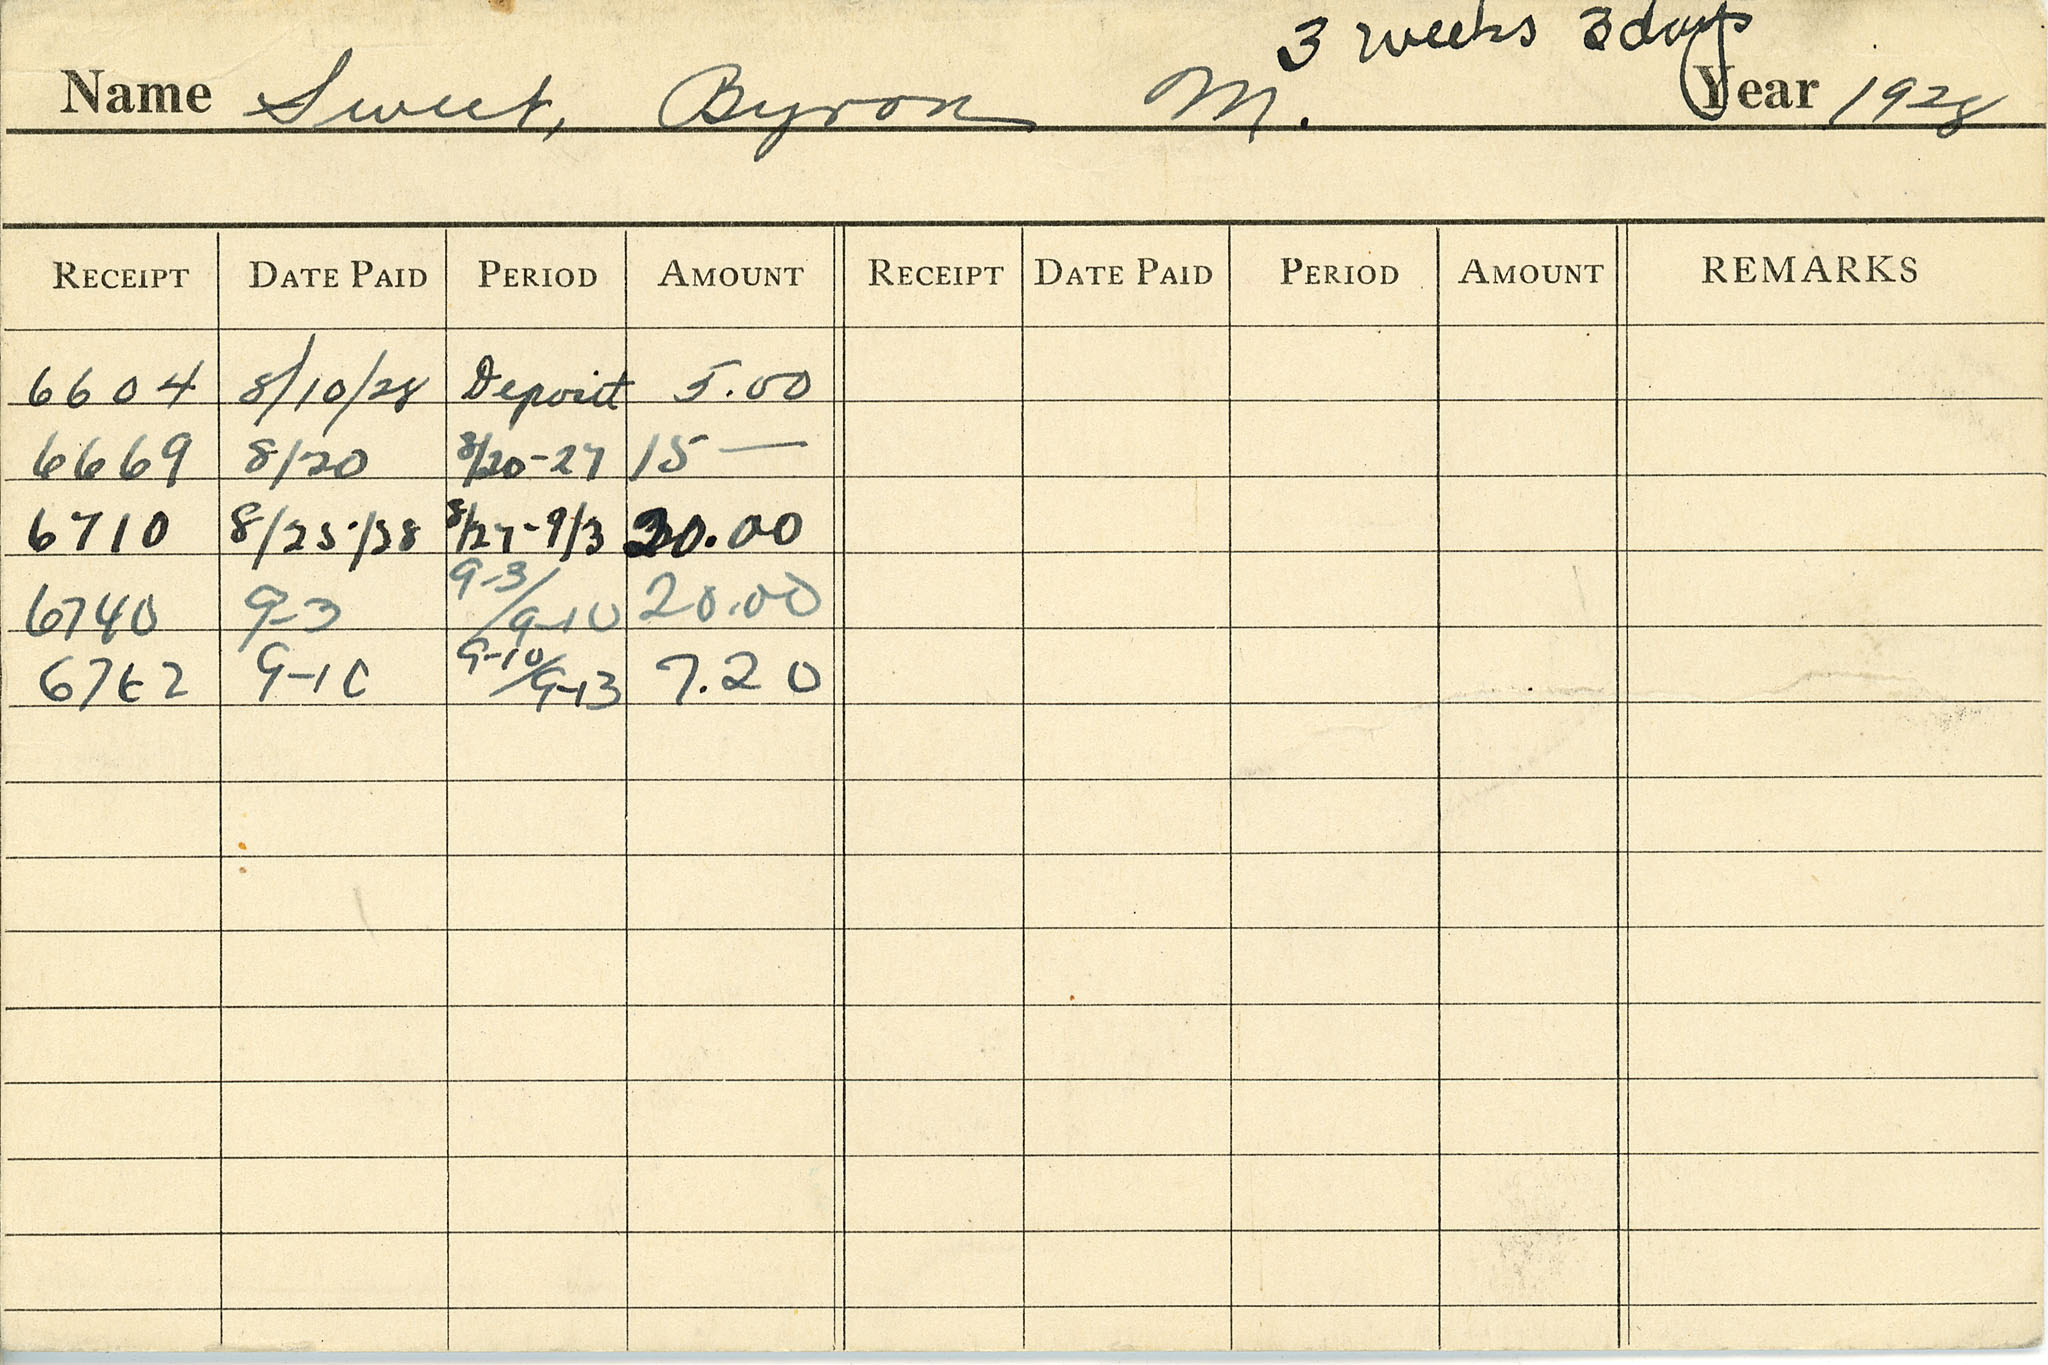 3 weeks 3 days
Name Sweet, Byron M. Year 1928
RECEIPT DATE PAID PERIOD AMOUNT RECEIPT DATE PAID PERIOD AMOUNT REMARKS
6604 8/10/28 Deposit 5.00
6669 8/20 8/20-27 15 —
6710 8/25/28 8/27-9/3 20.00
6740 9-3 9-3/9-10 20.00
9-10 9-10/9-13 7.20